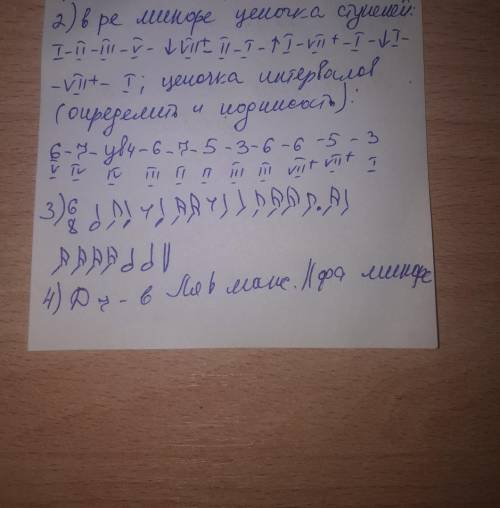 2) в ре миноре цепочка ступеней:
I-II-III-V-↓VII+-II-I-↑I-VII+-I-↓I-
-VII+-I; цепочка интервалов
(определить и подписать):
6-7-ув4-6-7-5-3-6-6-5-3
V IV IV III II II III III VII+ VII+ I
3) 6/8
4) D7-в Ля♭ маж. // фа миноре